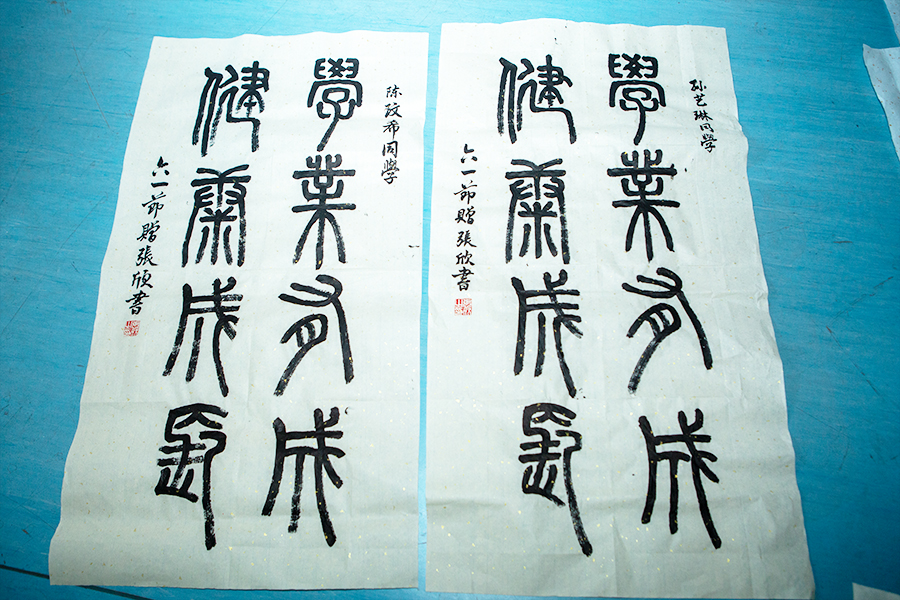 孙艺琳同學
學業有成
健康成長
六一節贈張欣書
陈玟希同學
學業有成
健康成長
六一節贈張欣書